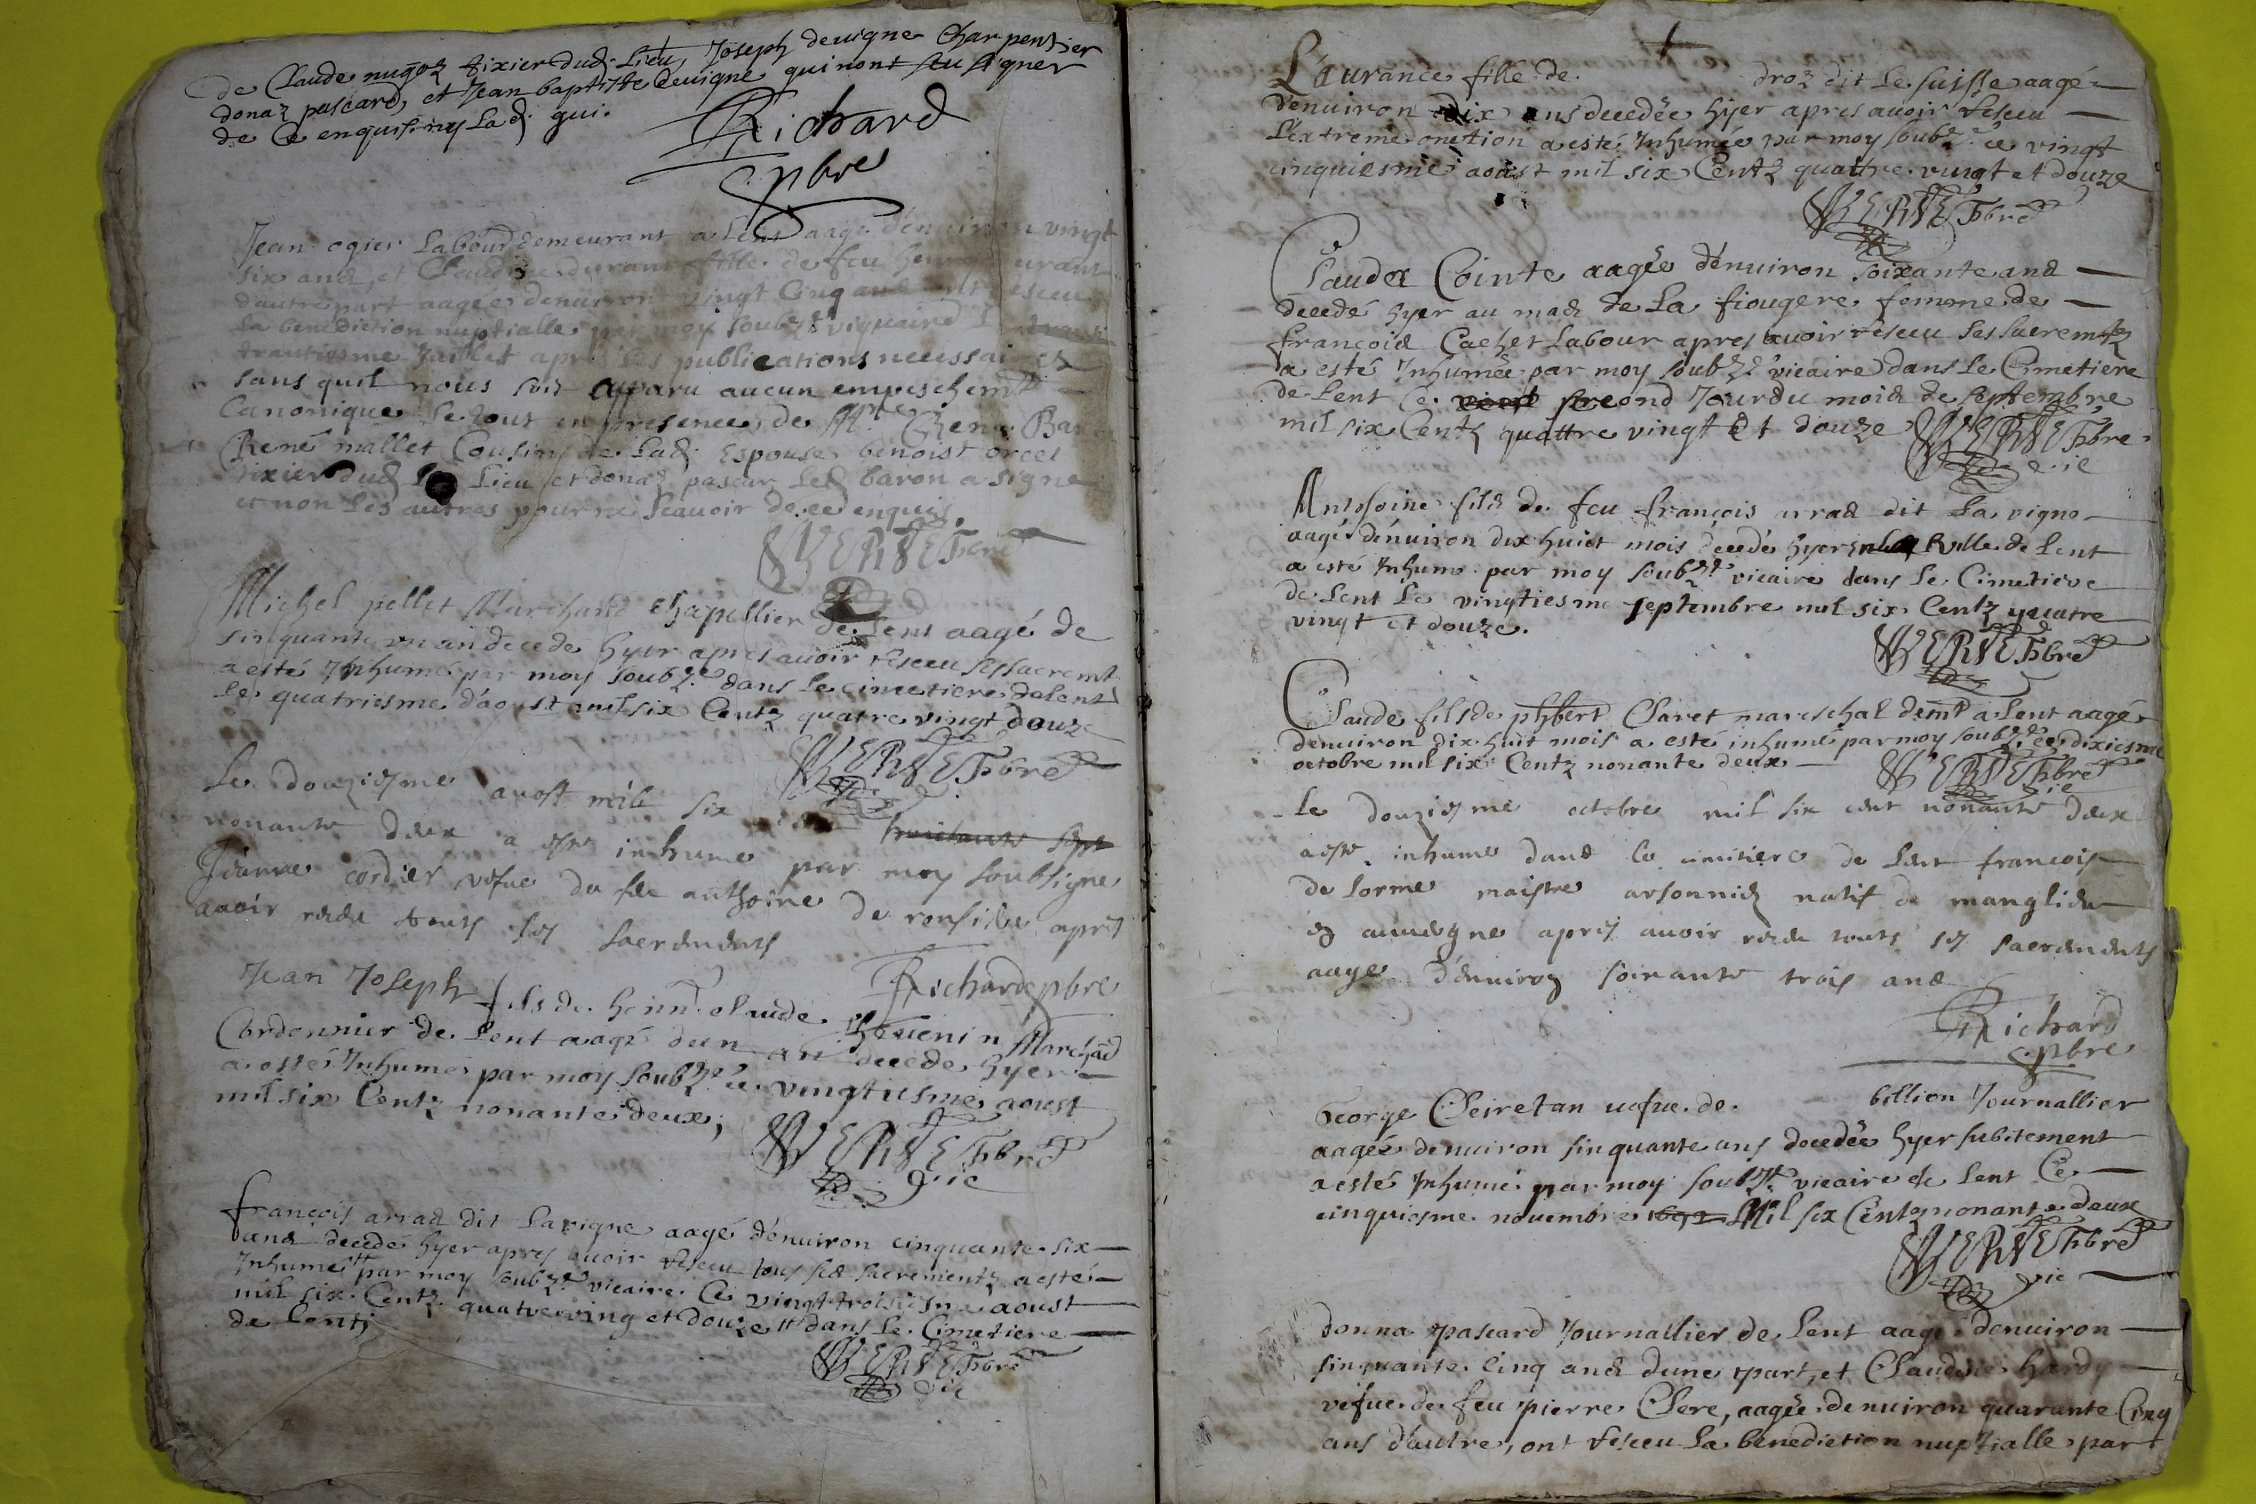 de Claude nugoz tixier dud. Lieu, Joseph deuigne Charpentier
donaz pascard, et Jean baptiste deuigne qui nont sçu signer
de ce enquis. ny Lad. gui.
Richard
pbre
Jean ogier Labour demeurant a Lent aagé dénuiron vingt
six ans, et Claudine durant fille de feu
dautre part aagée denuiron vingt Cinq ans ont resceu
La benediction nuptialle par moy soubz.né viquaire
trantiesme Juillet apres les publications necessaires
sans quil nous soit aparu aucun empeschem.t
Canonique Le tout en presence de M.re
René mallet Cousin de Lad. Espouse benoist orcel
tixier dud. Lieu et donaz pascar Led. baron a signé
et non Les autres pour ne scauoir de ce enquis.
VERNE pbre
Michel pellet Marchand chapellier de Lent aagé de
sinquante un an decede hyer apres auoir resceu ses sacremt
a esté Inhumé par moy soubz.né dans le cimetiere de Lent
Le quatriesme d'aoust mil six Centz quatre vingt douze
VERNE pbre
Le douziesme aoust mil six
nonante deux a este inhume par moy soubsigne
Jeanne cordier vefue du feu anthoine de ronfille apres
auoir receu touts ses sacrements
Richard pbre
Jean Joseph fils de hon.t claude theuenin Marchād
Cordonnier de Lent aagé dun an decede hyer
a esté Inhumé par moy soubz.né ce vingtiesme aoust
mil six Centz nonante deux,
VERNE pbre
vic
françois arrad dit Lavigne aagé dénuiron cinquante six
ans decedé hyer apres auoir resceu tous ses sacrementz a esté
Inhumé par moy soubz.né vicaire Ce vingt troisiesme aoust
mil six Centz quatre ving et douze dans le Cimetiere
de Lent
VERNE pbre
vic
L'aurance fille de droz dit Le suisse aagé
denuiron dix ans decedée hyer apres auoir resceu
Léxtreme onction a esté Inhumée par moy soubz.né ce vingt
cinquiesme aoust mil six Centz quattre vingt et douze
VERNE pbre
Clauda Cointe aagée dénuiron soixante ans
decedé hyer au mas de La fiougere femme de
françois Cachet Labour apres auoir resceu ses sacremtz
a esté Inhumée par moy soubz.né vicaire dans Le Cimetiere
de Lent Ce second Jour du mois de septembre
mil six Centz quattre vingt et douze
VERNE pbre
vic
Anthoine fils de feu françois arrad dit La vigne
aagé dénuiron dix huict mois decedé hyer ville de Lent
a esté Inhumé par moy soubz.né vicaire dans Le Cimetiere
de Lent Le vingtiesme septembre mil six Centz quatre
vingt et douze.
VERNE pbre
Claude fils de phbert Claret mareschal dem.t a Lent aagé
denuiron dix huit mois a esté inhumé par moy soubz.né ce dixiesme
octobre mil six Centz nonante deux
VERNE pbre
vic
Le douziesme octobre mil six cent nonante deux
a este inhume dans le cimitiere de Lent francois
de Lorme maistre natif de manglieu
en auuergne apres auoir receu touts ses sacrements
aage d'enuiron soixante trois ans
Richard
pbre
George Cleiretan uefue de billion Journallier
aagée denuiron sinquante ans decedée hyer subitement
a esté Inhumé par moy soubz.né vicaire de Lent Ce
cinquiesme nouembre 1692 Mil six Centz nonante deux
VERNE pbre
vic
donna pascard Journallier de Lent aagé denuiron
sinquante cinq ans dune part, et Claudine hardy
vefue de feu pierre Clere, aagée denuiron quarante Cinq
ans d'autre, ont resceu La benediction nuptialle par